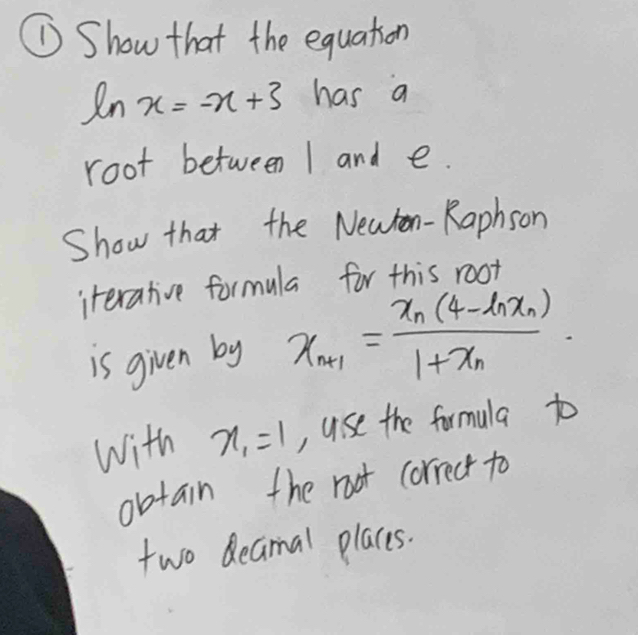 ① Show that the equation
ln x = -x + 3 has a
root between 1 and e.
Show that the Newton-Raphson
iterative formula for this root
is given by xₙ₊₁ = xₙ(4 - ln xₙ) / (1 + xₙ).
With x₁ = 1, use the formula to
obtain the root correct to
two decimal places.